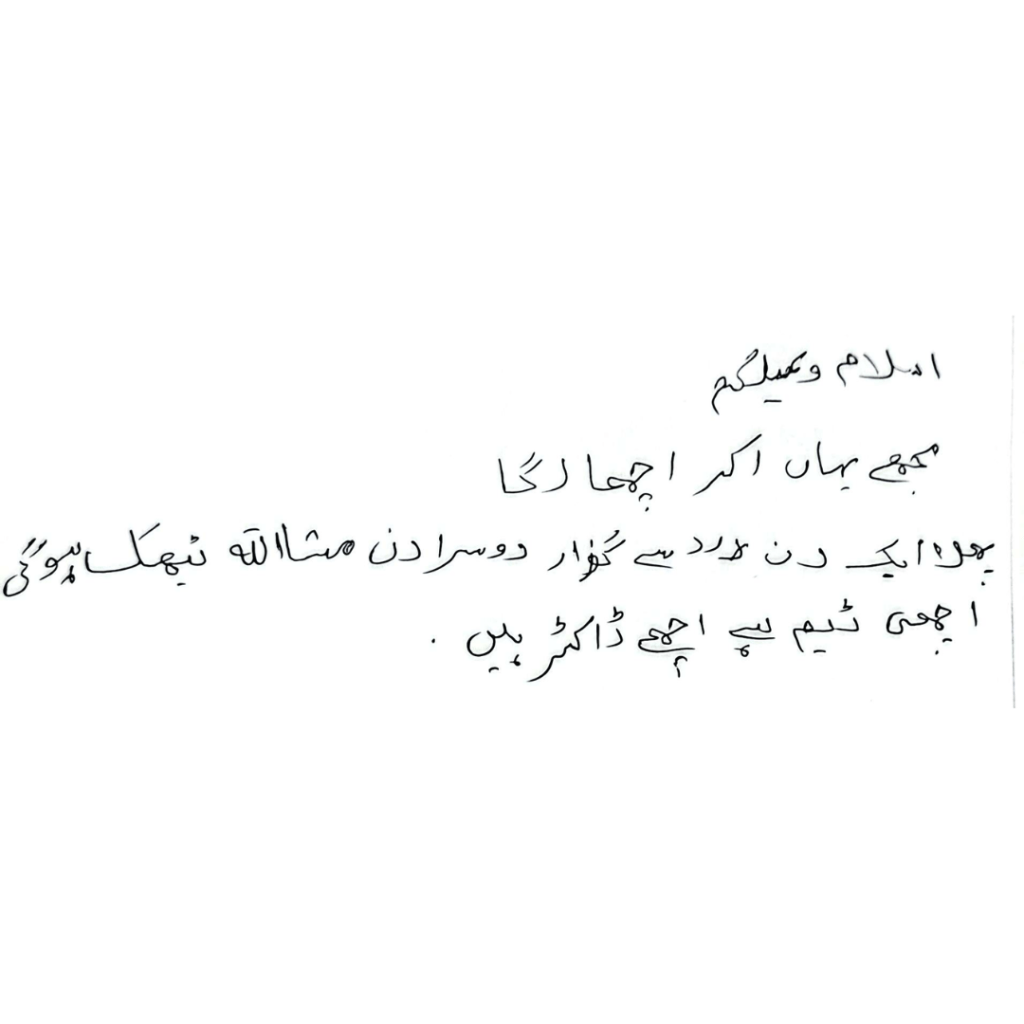 اسلام وعیلگم
مجھے یہاں اکر اچھا لگا
پھلا ایک دن درد سے گزار دوسرا دن مشااللہ ٹیھک ہوگی
اچھی ٹیم ہے اچھے ڈاکٹر ہیں .